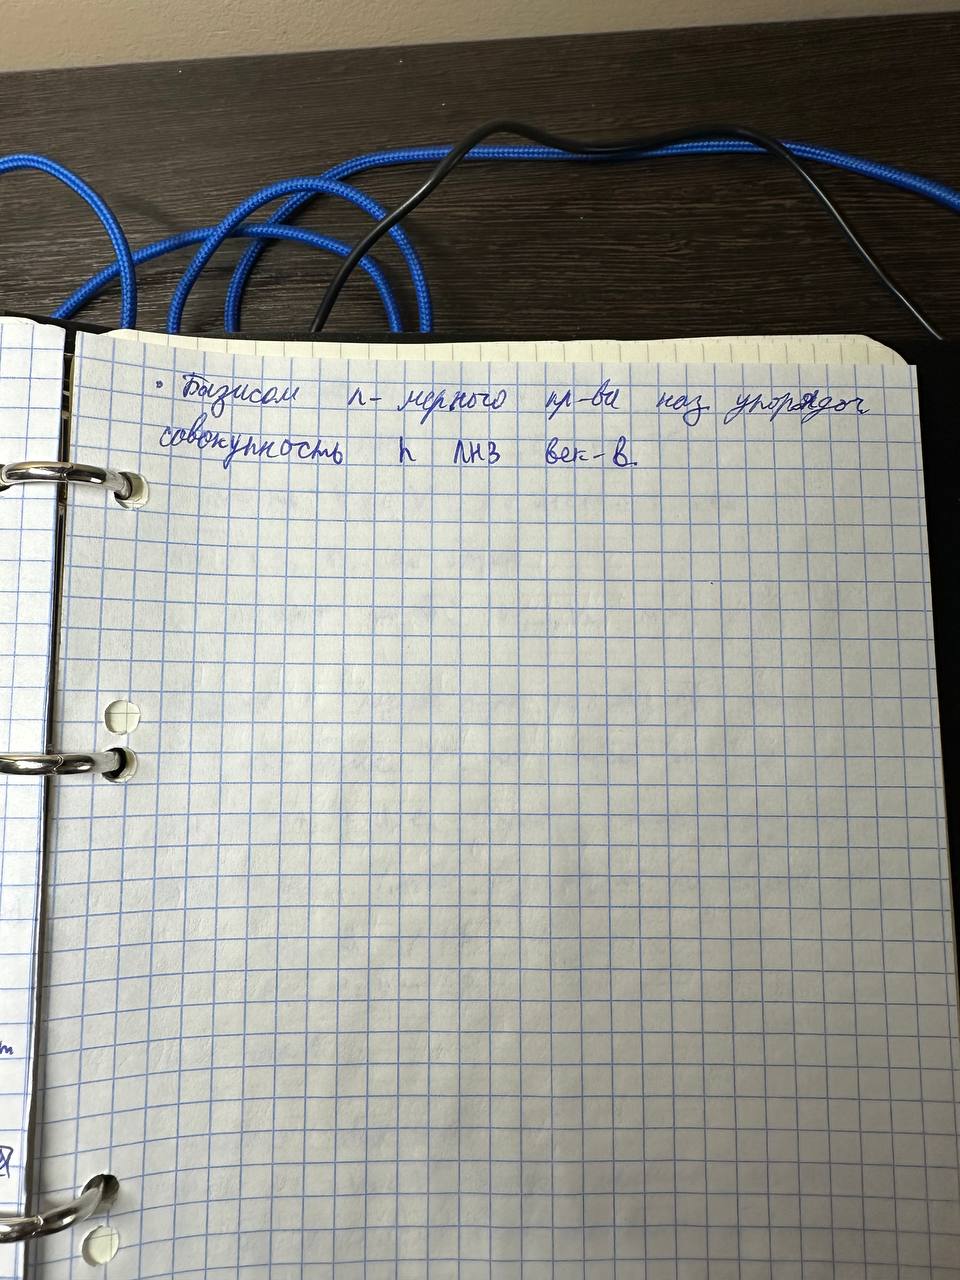 • Базисом n-мерного пр-ва наз упорядоч
совокупность n ЛНЗ век-в.